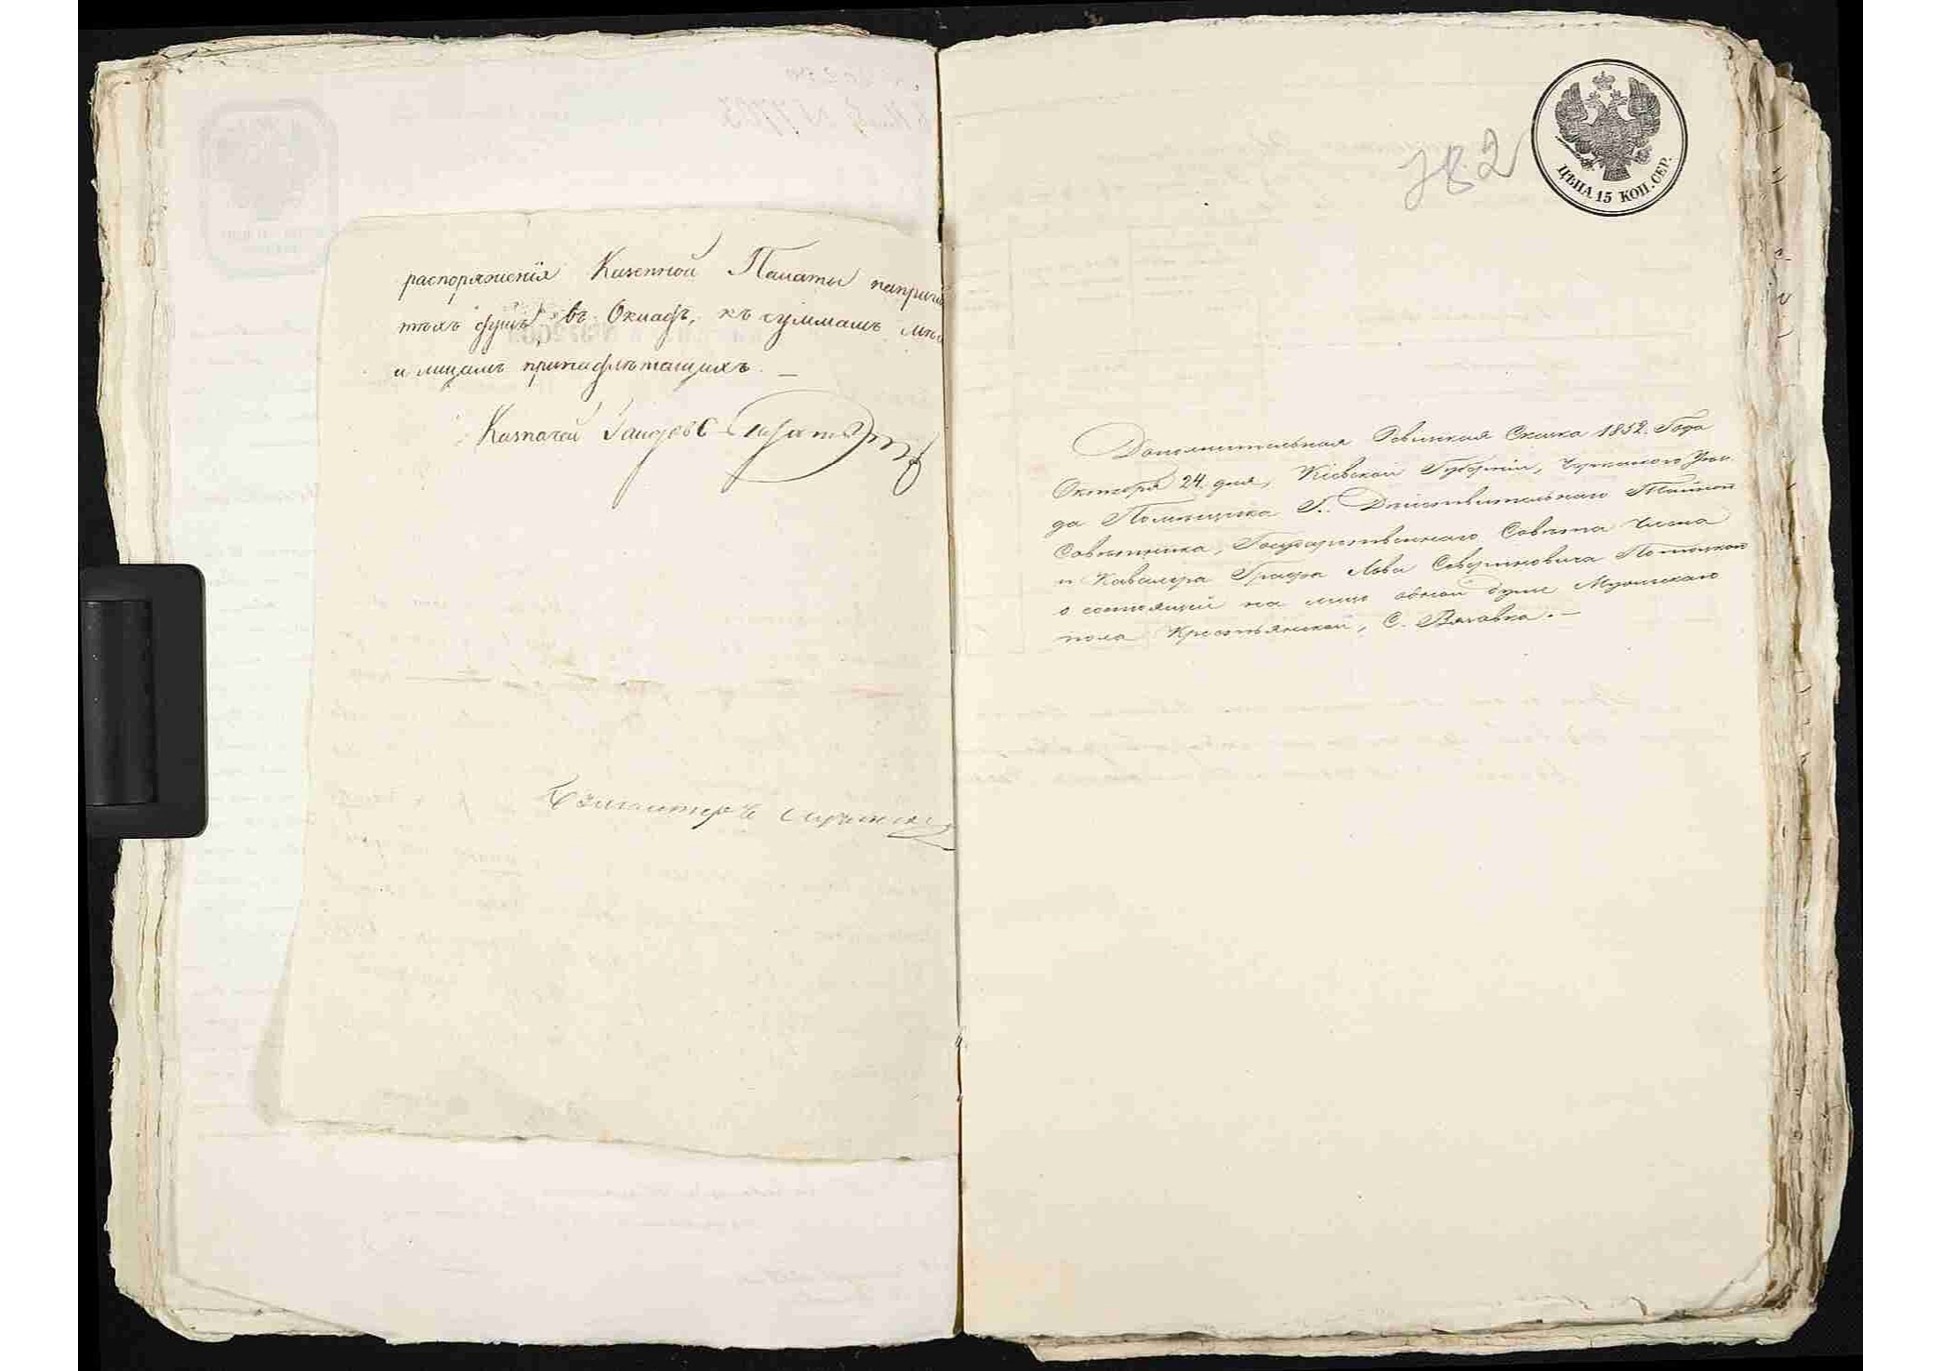 распоряженія Казенной Палаты
тѣхъ душъ въ Окладъ, къ суммамъ
и лицамъ принадлежащихъ. —
Казначей
Бухгалтеръ
782
ЦѢНА 15 КОП. СЕР.
Дополнительная Ревизская Сказка 1852. Года
Октября 24. дня, Кіевской Губерніи, Черкаскаго Уѣз-
да Помещика Г. Дѣйствительнаго Тайнаго
Совѣтника, Государственнаго Совѣта Члена
и Кавалера Графа Льва Севериновича Потоцкаго
о состоящей на лицо одной души Мужескаго
пола Крестьянской, С. Вязовка. —